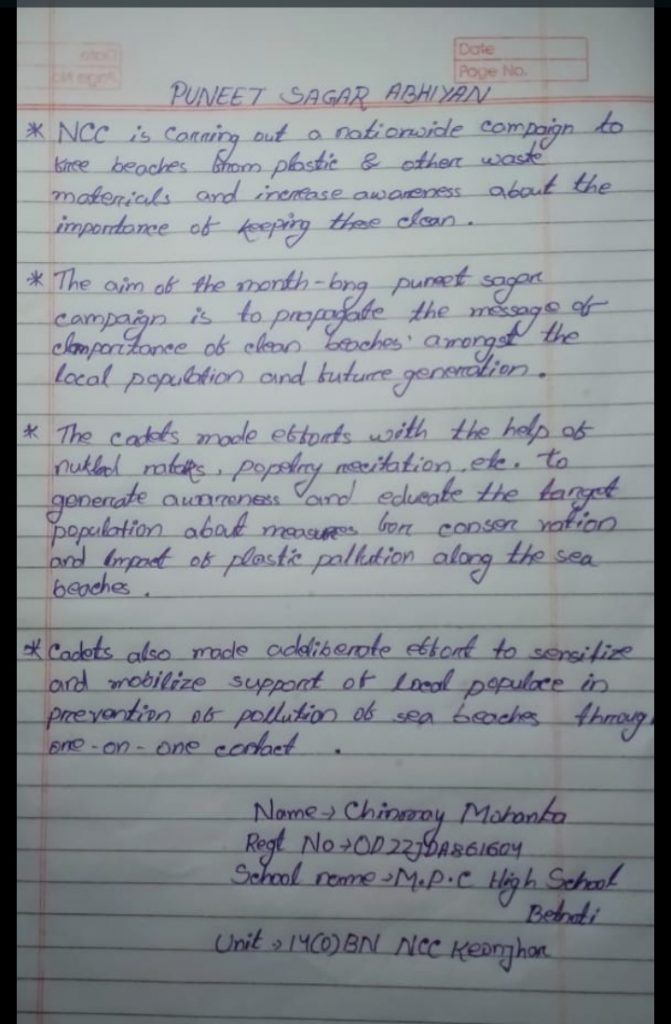 Date
Page No.
PUNEET SAGAR ABHIYAN
* NCC is carring out a nationwide campaign to
free beaches from plastic & other waste
materials and increase awareness about the
importance of keeping these clean.
* The aim of the month-long puneet sagar
campaign is to propagate the message of
importance of clean beaches' amongst the
local population and future generation.
* The cadets made efforts with the help of
nukkad , recitation, etc. to
generate awareness and educate the target
population about measures for conser vation
and impact of plastic pallution along the sea
beaches.
* Cadets also made addiberate effort to sensitize
and mobilize support of local populace in
prevention of pollution of sea beaches throug
one-on-one contact .
Name → Chinmay Mohanta
Regt No → OD22JDA861604
School name → M.P.C High School
Betnoti
Unit → 14(O) BN NCC Keonjhar